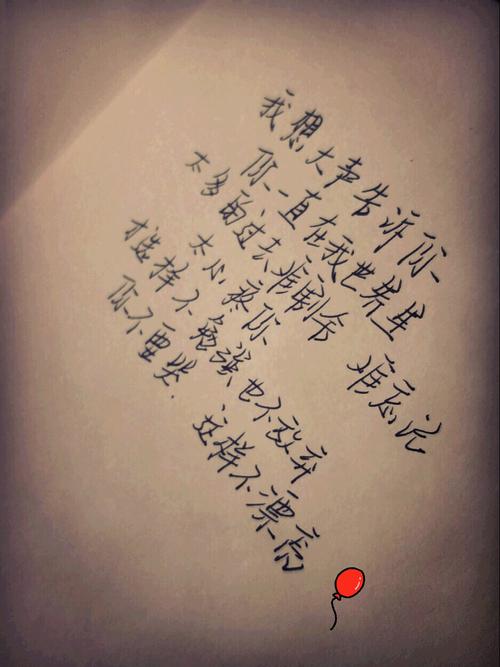 我想大声告诉你
你一直在我世界里
太多的过去难割舍 难忘记
太心疼你
才选择不勉强也不放弃
你不要哭. 这样不漂亮